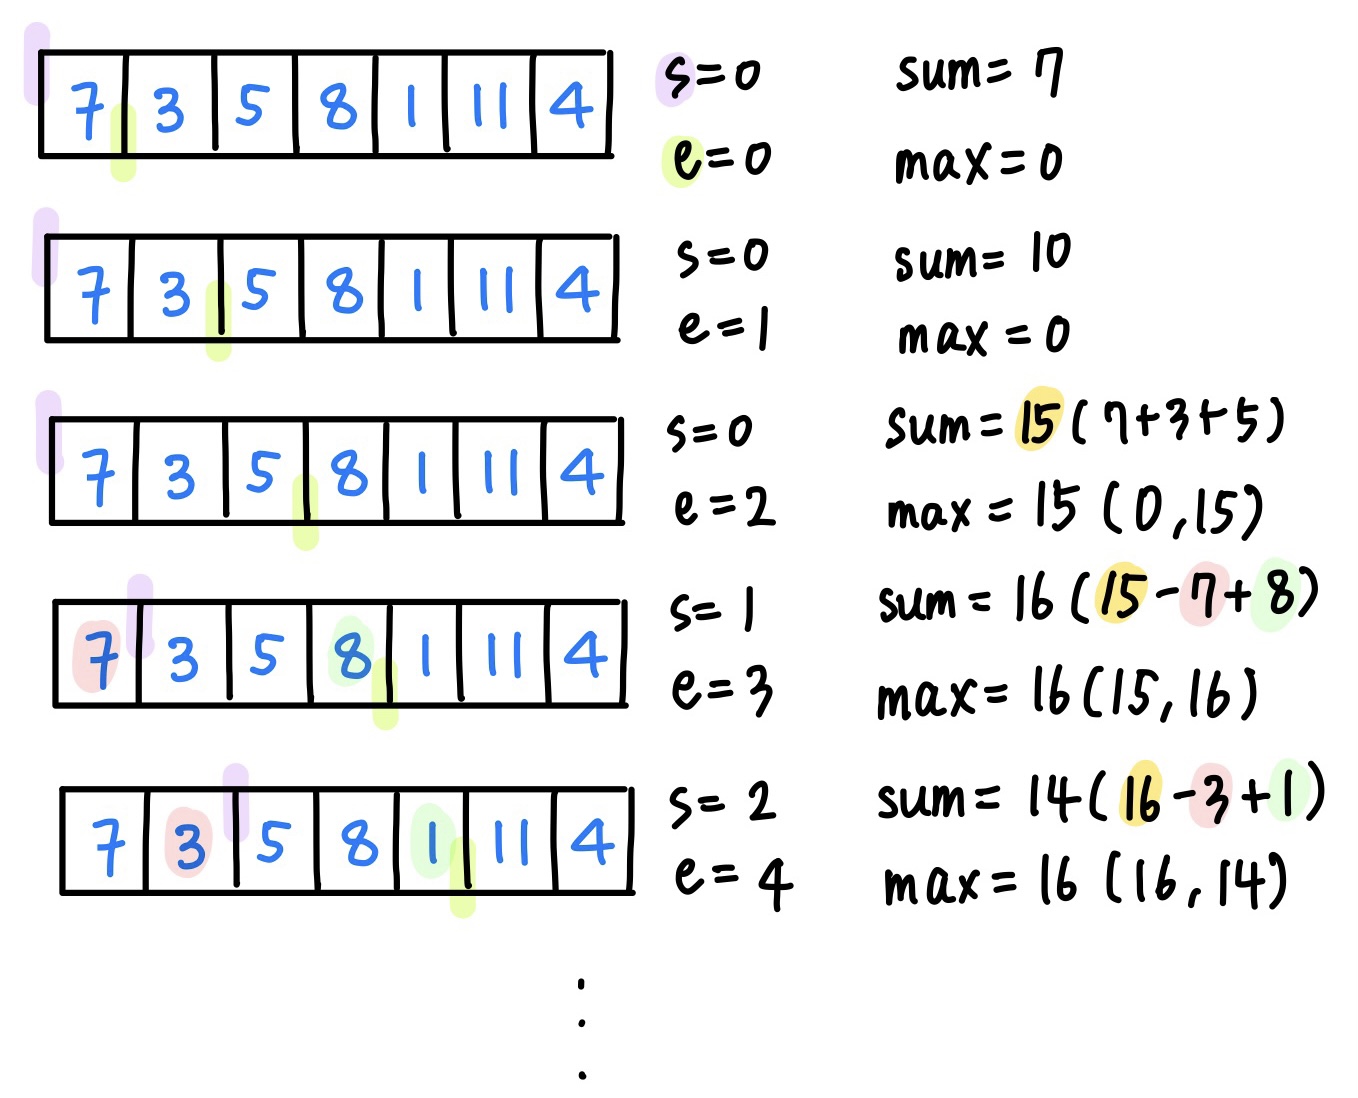 7 3 5 8 1 11 4 s=0 sum= 7
e=0 max=0
7 3 5 8 1 11 4 s=0 sum= 10
e=1 max=0
7 3 5 8 1 11 4 s=0 sum= 15 (7+3+5)
e=2 max= 15 (0,15)
7 3 5 8 1 11 4 s= 1 sum= 16 (15-7+8)
e=3 max= 16 (15, 16)
7 3 5 8 1 11 4 s= 2 sum= 14 (16-3+1)
e= 4 max= 16 (16, 14)